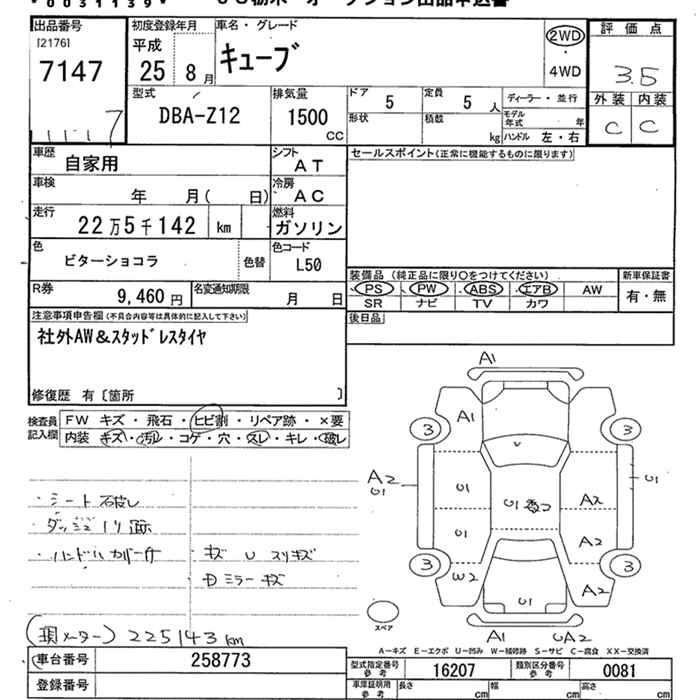 *0031139*
出品番号
[2176]
7147
初度登録年月
平成
25 8 月
車名・グレード
キューブ
2WD
4WD
評価点
3.5
外装 内装
C C
型式
DBA-Z12
排気量
1500
CC
ドア
5
定員
5 人
形状
積載
kg
ディーラー・並行
モデル年式 年
ハンドル 左・右
車歴
自家用
シフト
AT
セールスポイント(正常に機能するものに限ります)
車検
年 月( 日)
冷房
AC
走行
22万5千142 km
燃料
ガソリン
色
ビターショコラ
色替
色コード
L50
装備品 (純正品に限り○をつけてください)
新車保証書
PS PW ABS エアB AW
有・無
SR ナビ TV カワ
R券
9,460 円
名変通知期限
月 日
後日品
注意事項申告欄(不具合内容等は具体的に記入して下さい)
社外AW&スタッドレスタイヤ
修復歴 有〔箇所 〕
検査員記入欄
FW キズ・飛石・ヒビ割・リペア跡・×要
内装 キズ・汚レ・コゲ・穴・スレ・キレ・破レ
・シート破レ
・ダッシュ
・ハンドルカバー
キズ U スリキズ
ミラーキズ
A1
A1
3
3
A2
U1
U1
U1
U1
U1
A2
A2
3
3
W2
A2
U1
A1
UA2
スペア
(現メーター) 225143 km
A-キズ E-エクボ U-凹み W-補修跡 S-サビ C-腐食 XX-交換済
車台番号
258773
型式指定番号
参考
16207
類別区分番号
参考
0081
登録番号
車庫証明用
参考
長さ
cm
幅
cm
高さ
cm